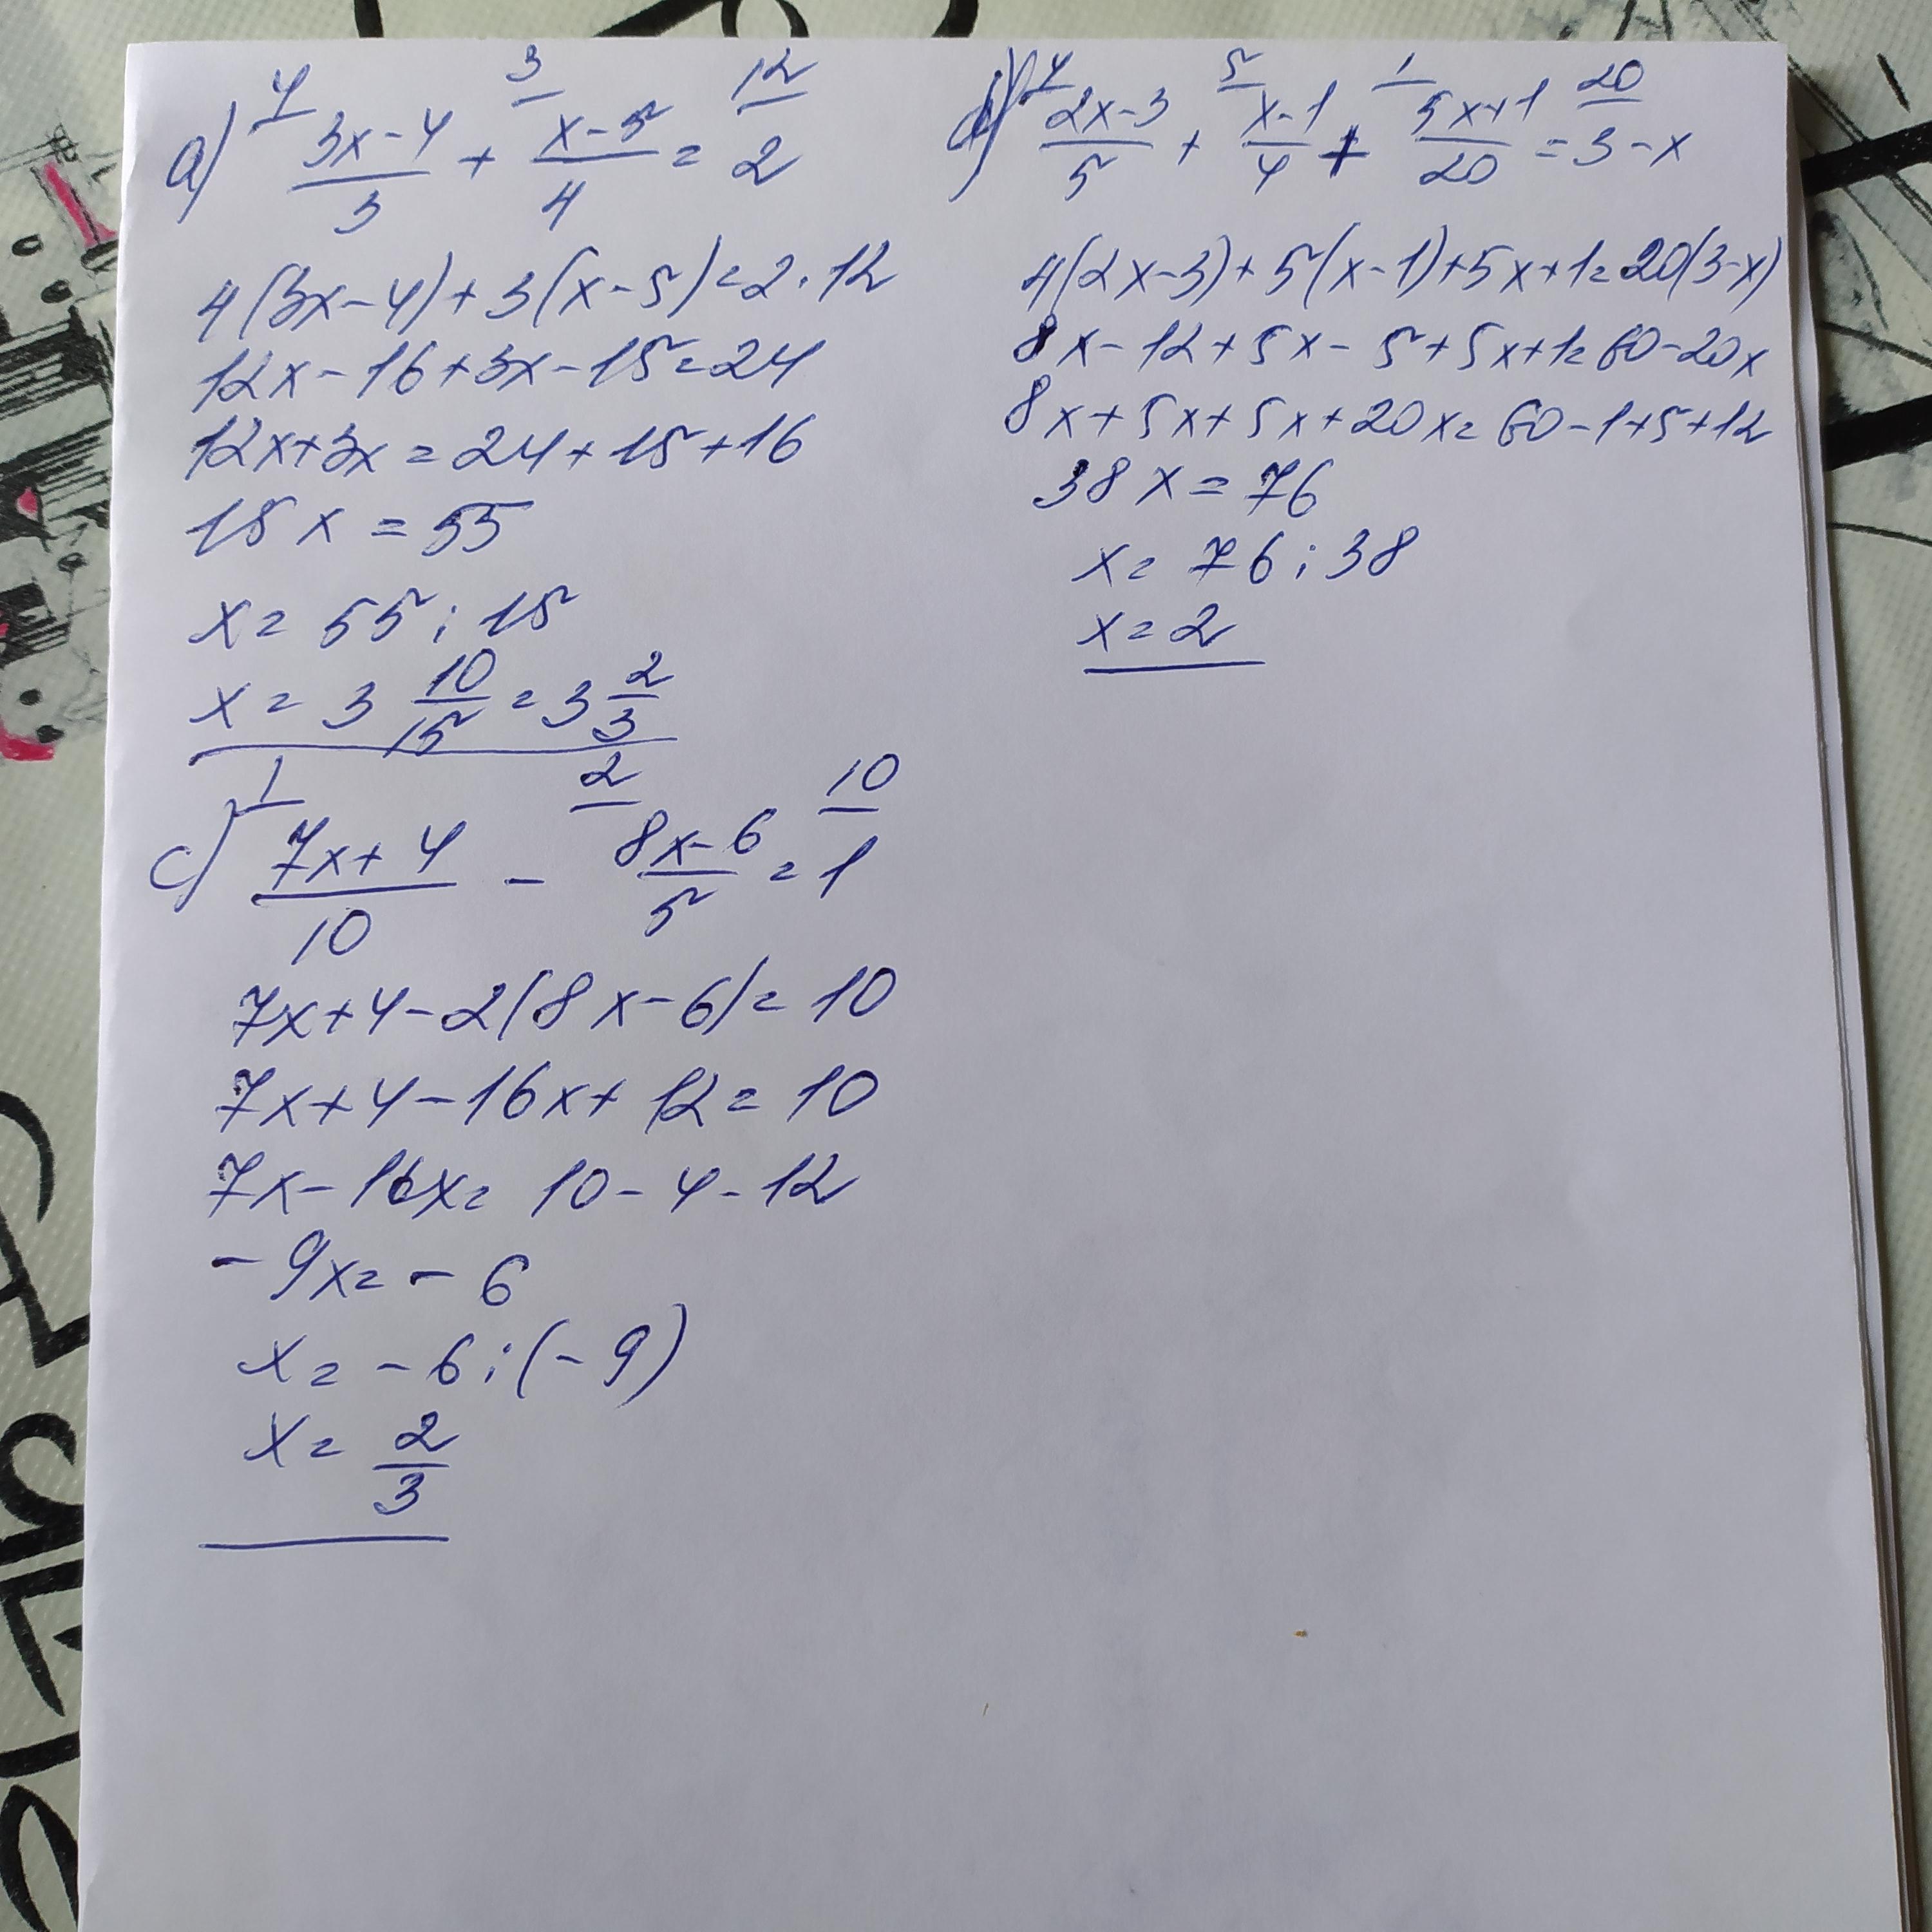 4 3 12
a) (3x-4)/3 + (x-5)/4 = 2
4(3x-4)+3(x-5)=2·12
12x-16+3x-15=24
12x+3x=24+15+16
15x=55
x=55:15
x=3 10/15=3 2/3
1 2 10
c) (7x+4)/10 - (8x-6)/5 = 1
7x+4-2(8x-6)=10
7x+4-16x+12=10
7x-16x=10-4-12
-9x=-6
x=-6:(-9)
x=2/3
4 5 1 20
(2x-3)/5 + (x-1)/4 + (5x+1)/20 = 3-x
4(2x-3)+5(x-1)+5x+1=20(3-x)
8x-12+5x-5+5x+1=60-20x
8x+5x+5x+20x=60-1+5+12
38x=76
x=76:38
x=2